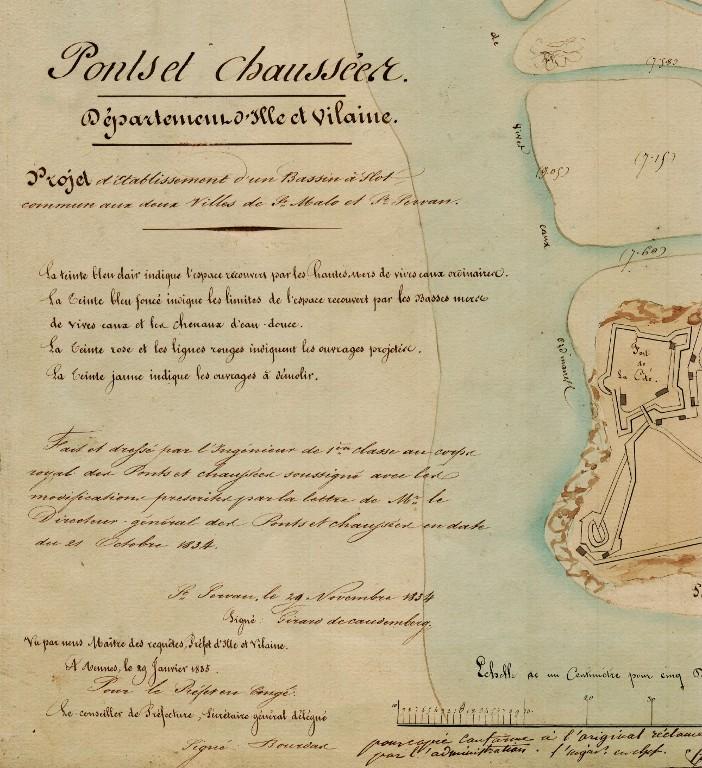 Ponts et Chaussées.
Département d'Ille et Vilaine.
Projet d'établissement d'un Bassin à flot
commun aux deux Villes de St. Malo et St. Servan.
La teinte bleu clair indique l'espace recouvert par les hautes mers de vives eaux ordinaires.
La Teinte bleu foncé indique les limites de l'espace recouvert par les Basses mers
de vives eaux et les chenaux d'eau-douce.
La Teinte rose et les lignes rouges indiquent les ouvrages projetés.
La Teinte jaune indique les ouvrages à démolir.
Fait et dressé par l'Ingénieur de 1ère classe au corps
royal des Ponts et chaussées soussigné avec les
modifications prescrites par la lettre de Mr. le
Directeur-général des Ponts et chaussées en date
du 21 Octobre 1834.
St. Servan, le 29 Novembre 1834
Signé: Girard de caudemberg.
Vu par nous Maître des requêtes, Préfet d'Ille et Vilaine.
A Rennes, le 29 Janvier 1835.
Pour le Préfet en Congé.
Le conseiller de Préfecture, Secrétaire général délégué
Signé
de
vives
eaux
ordinaires
(7.15)
(7.60)
Fort
de
La Cité.
Echelle de un Centimètre pour cinq
20
30
pour copie conforme à l'original réclamé
par l'administration.